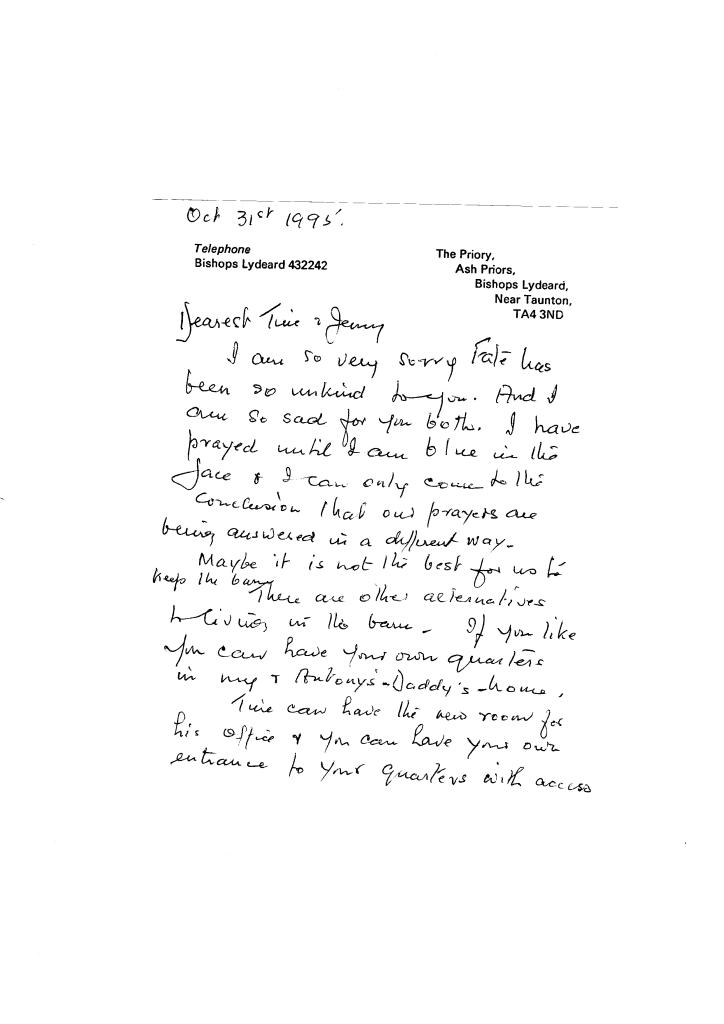 Oct 31st 1995.
Telephone
Bishops Lydeard 432242
The Priory,
Ash Priors,
Bishops Lydeard,
Near Taunton,
TA4 3ND
Dearest Tim & Jenny
I am so very sorry Fate has
been so unkind to you. And I
am so sad for you both. I have
prayed until I am blue in the
face & I can only come to the
conclusion that our prayers are
being answered in a different way.
Maybe it is not the best for us to
keep the barn
There are other alternatives
to living in the barn. If you like
you can have your own quarters
in my & Antony's - Daddy's - home.
Tim can have the new room for
his office & you can have your own
entrance to your quarters with access